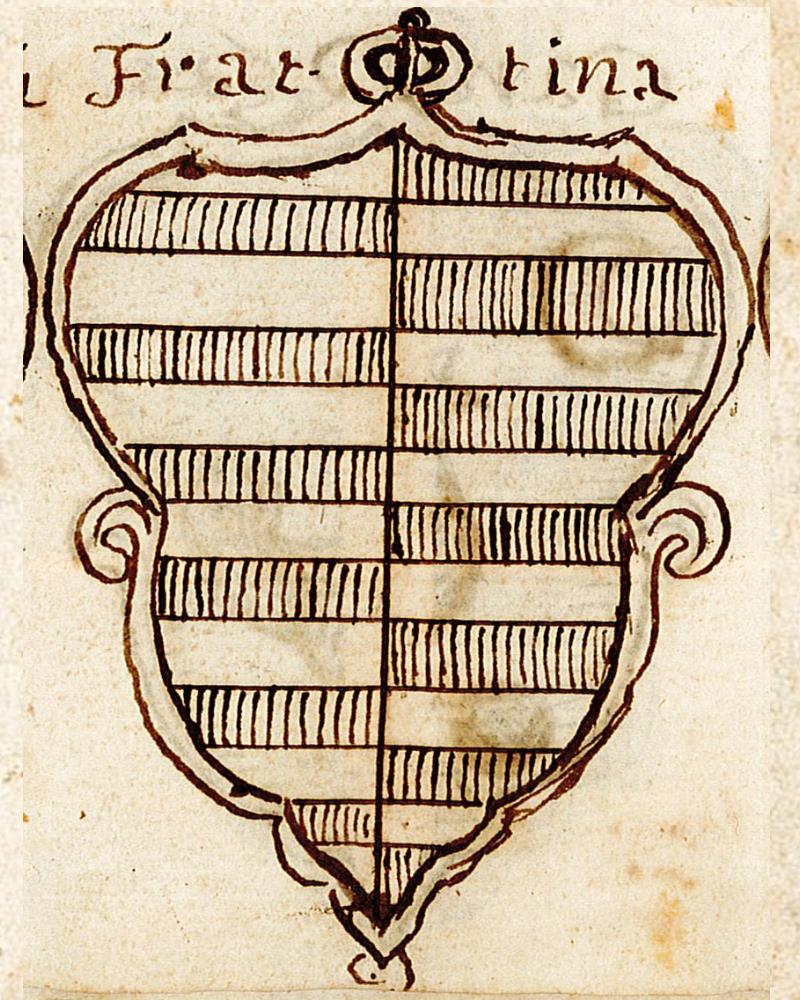 Frat- tina